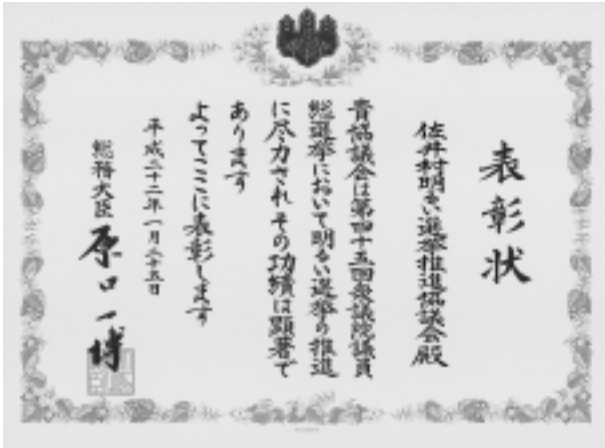 表彰状
佐井村明るい選挙推進協議会殿
貴協議会は第四十五回衆議院議員
総選挙において明るい選挙の推進
に尽力されその功績は顕著で
あります
よってここに表彰します
平成二十二年一月二十五日
総務大臣 原口一博